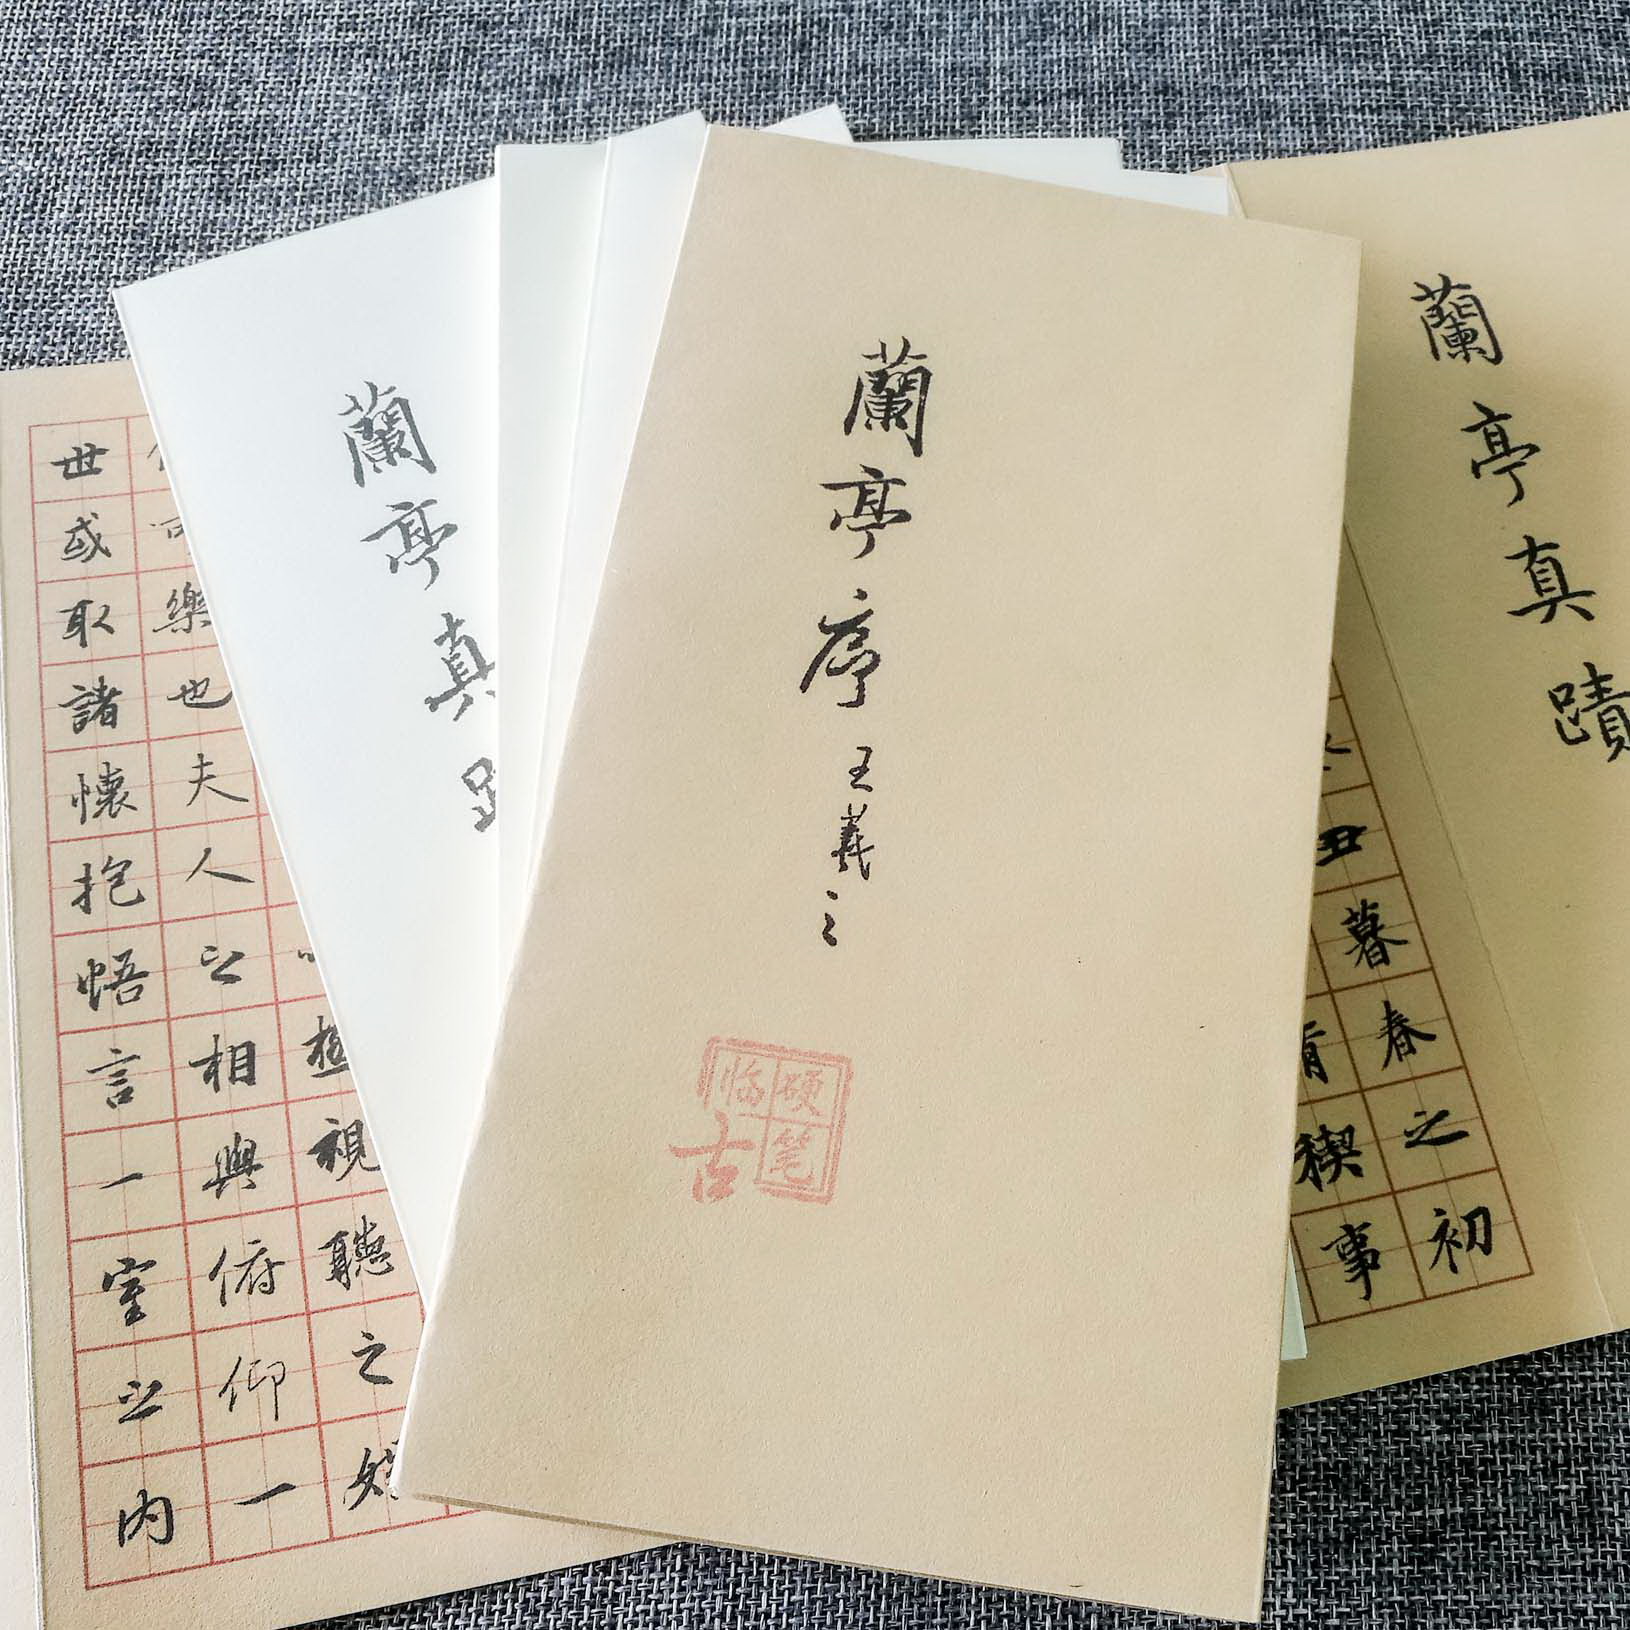 蘭亭序
王羲之
硬笔
临古
蘭亭真蹟
丑暮春之初
禊事
蘭亭真
極視聽之娛
樂也夫人之相與俯仰一
世或取諸懷抱悟言一室之内